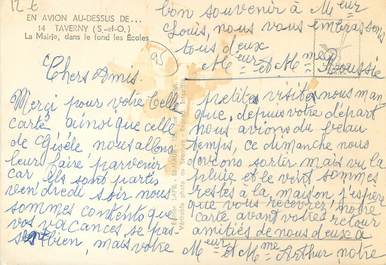 12 E
EN AVION AU-DESSUS DE...
14 TAVERNY (S.-et-O.)
La Mairie, dans le fond les Ecoles
95
Chers Amis.
Merci pour votre belle
carte ainsi que celle
de Gisèle nous allons
leur faire parvenir
car ils sont partis
vendredi soir nous
sommes contents que
vos vacances se pas
sent bien, mais votre
petites visites nous man
que, depuis votre départ
nous avions du beau
temps, ce dimanche nous
devions sortir mais vu la
pluie et le vent sommes
restés à la maison j'espère
que vous recevrez notre
carte avant votre retour
amitiés de nous deux à
Meur et Mme Arthur notre
bon souvenir à Meur
Louis, nous vous embrassons
tous deux
Meur et Mme